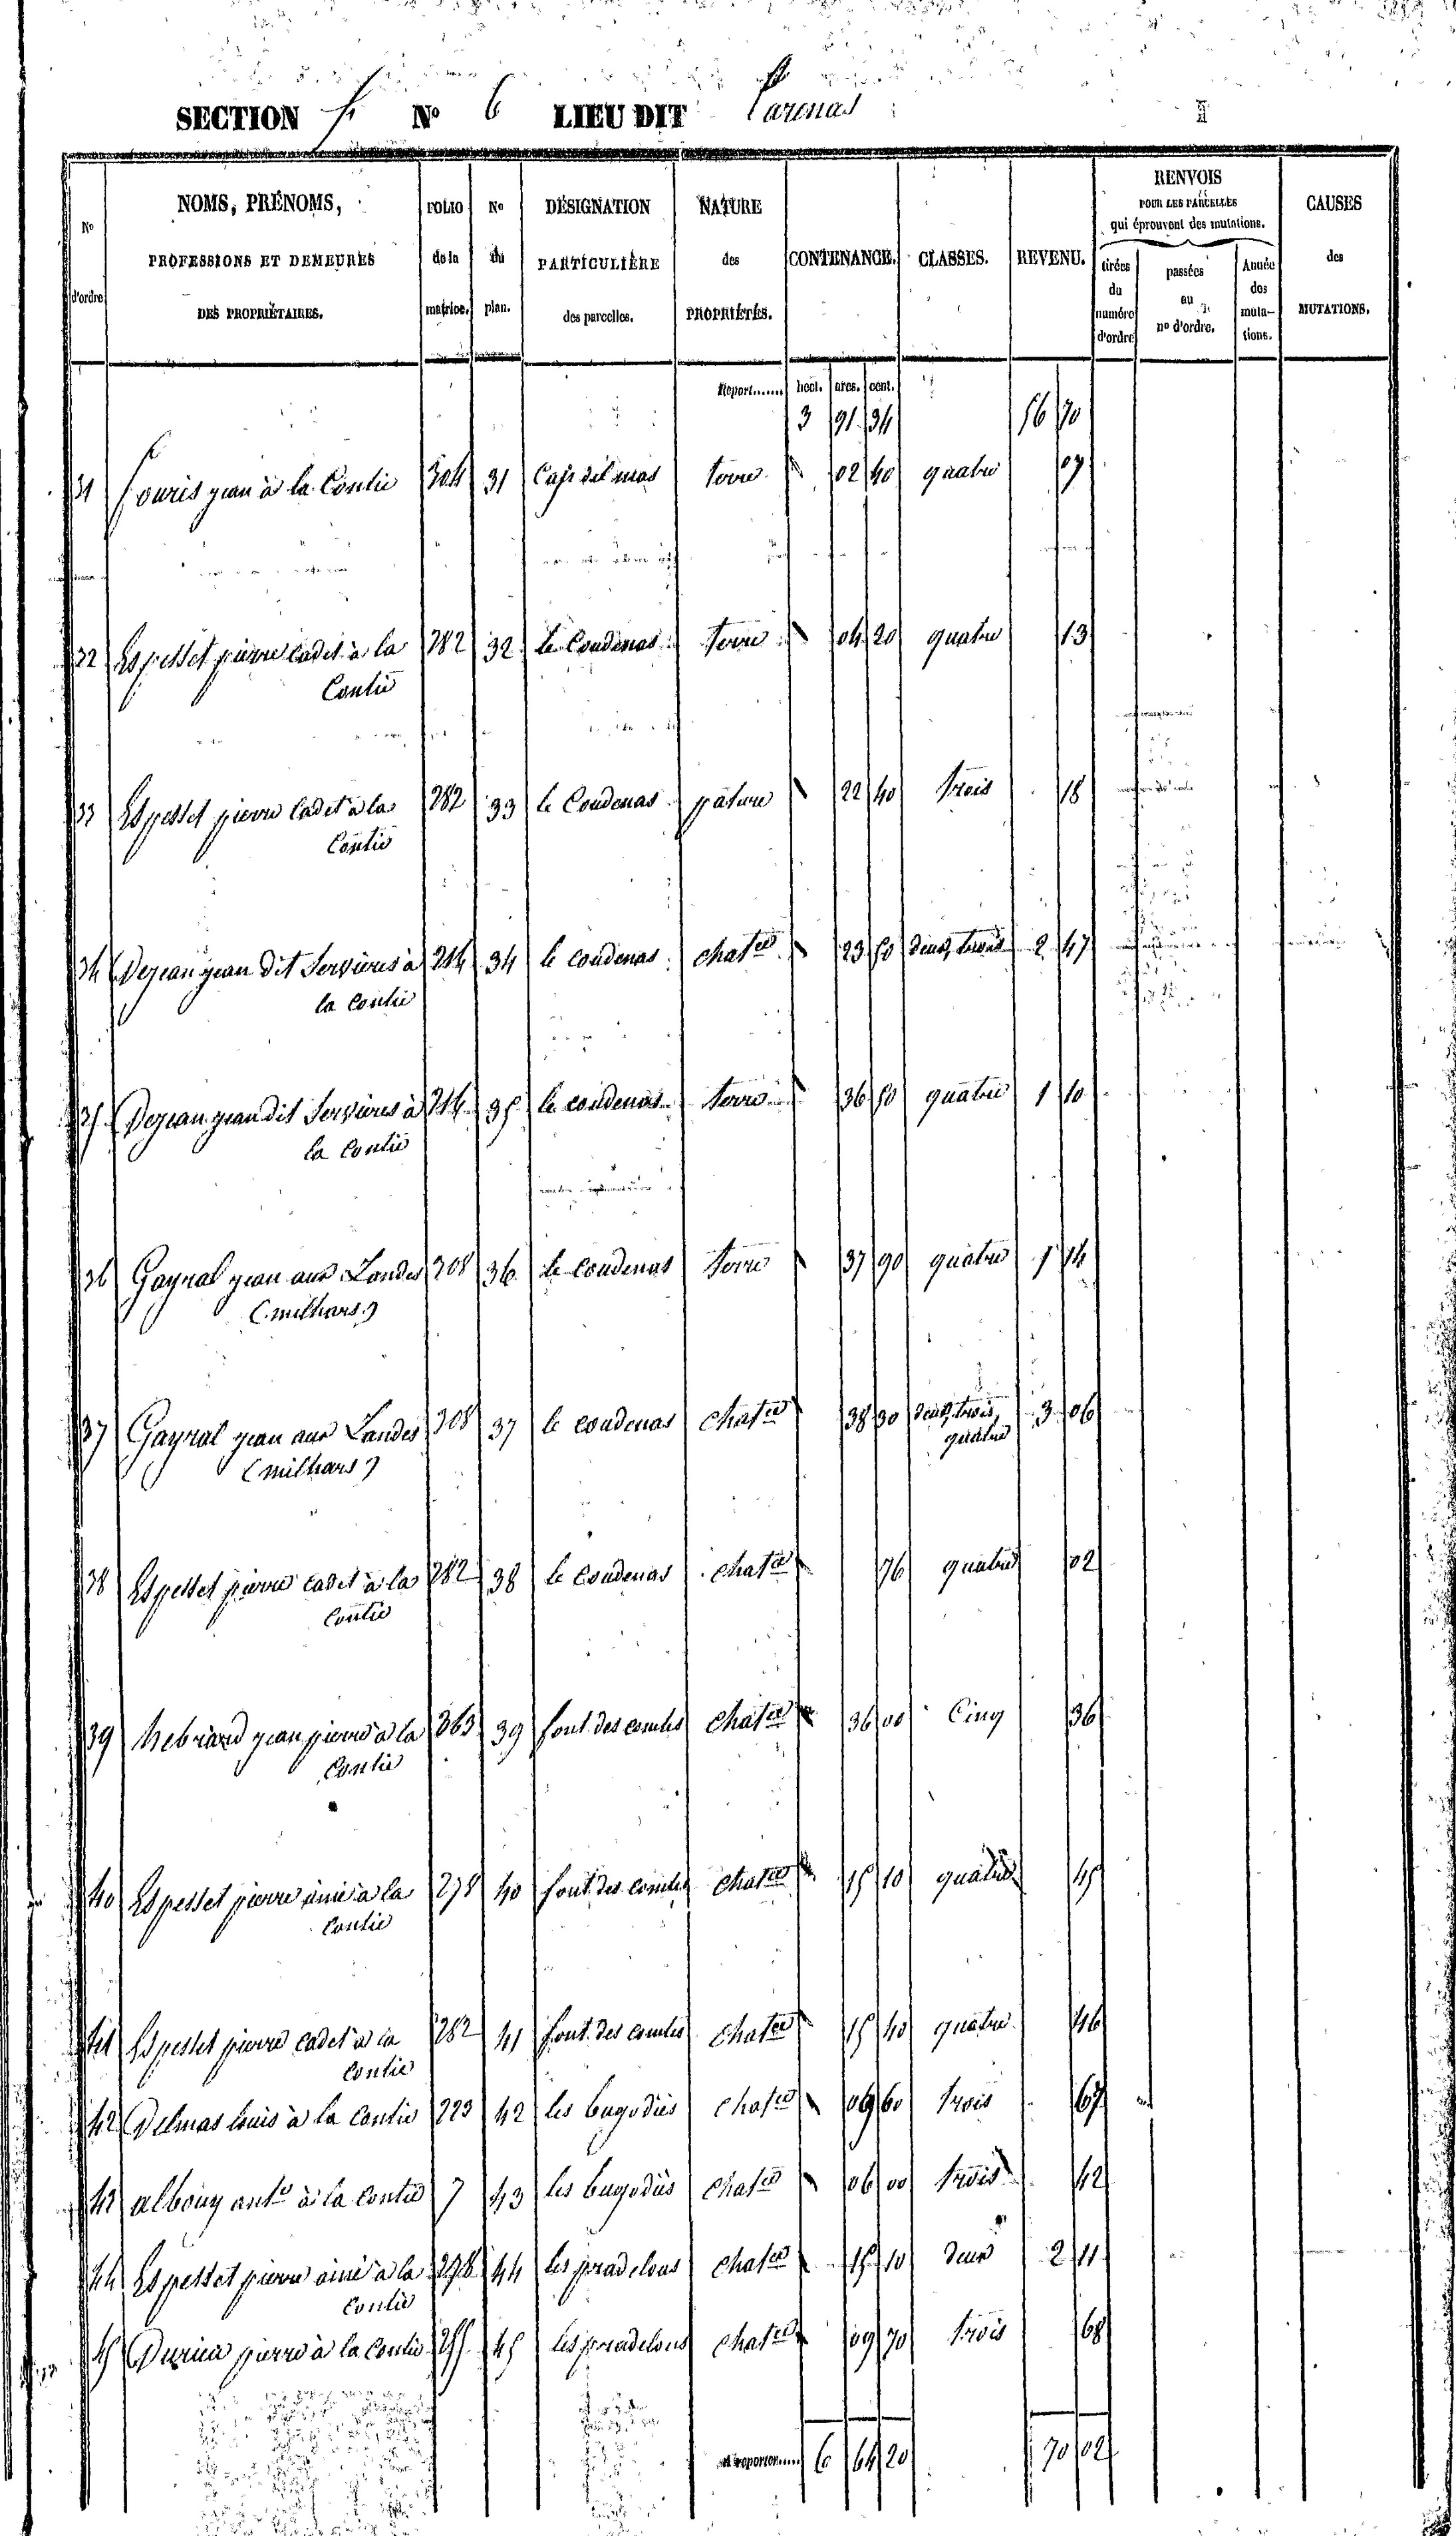 SECTION F N° 6 LIEU DIT Carenas
N° d'ordre | NOMS, PRÉNOMS, PROFESSIONS ET DEMEURES DES PROPRIÉTAIRES. | FOLIO de la matrice. | N° du plan. | DÉSIGNATION PARTICULIÈRE des parcelles. | NATURE des PROPRIÉTÉS. | CONTENANCE. | CLASSES. | REVENU. | RENVOIS POUR LES PARCELLES qui éprouvent des mutations. | tirées du numéro d'ordre | passées au n° d'ordre. | Année des muta-tions. | CAUSES des MUTATIONS.
Report...... hect. ares. cent.
3 91 34 56 70
31 fouris jean à la Contie 304 31 Cap del mas terre " 02 40 quatre 07
32 Espesset pierre cadet à la 282 32 le Coudenas terre " 04 20 quatre 13
Contie
33 Espesset pierre Cadet à la 282 33 le Coudenas pature " 22 40 trois 18
Contie
34 Dejean jean dit Servières à 214 34 le coudenas chat.ie " 23 50 deux, trois 2 47
la Contie
35 Dejean jean dit Servières à 214 35 le coudenas terre " 36 50 quatre 1 10
la Contie
36 Gayral jean aux Landes 308 36 le coudenas terre " 37 90 quatre 1 14
(milhars)
37 Gayral jean aux Landes 308 37 le coudenas chat.ie " 38 30 deux, trois, 3 06
(milhars) quatre
38 Espesset pierre cadet à la 282 38 le coudenas chat.ie " 76 quatre 02
Contie
39 hebrard jean pierre à la 363 39 font des comtes chat.ie " 36 00 Cinq 36
Contie
40 Espesset pierre ainé à la 278 40 font des comtes chat.ie " 15 10 quatre 45
Contie
41 Espesset pierre cadet à la 282 41 font des comtes chat.ie " 15 40 quatre 46
Contie
42 Delmas louis à la Contie 223 42 les bugodiès chat.ie " 09 60 trois 67
43 albouy ant.e à la Contie 7 43 les bugodiès chat.ie " 06 00 trois 42
44 Espesset pierre ainé à la 278 44 les pradelous chat.ie " 15 10 deux 2 11
Contie
45 Durieu pierre à la Contie 255 45 les pradelous chat.ie " 09 70 trois 68
A reporter...... 6 64 20 70 02